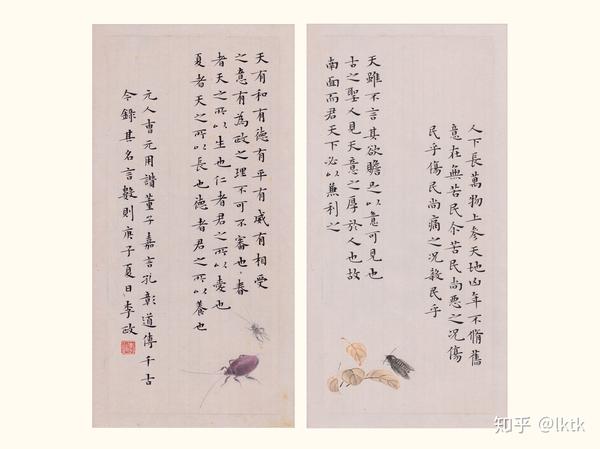 人下長萬物上參天地凶年不脩舊
意在無苦民尒苦民尚惡之況傷
民乎傷民尚痛之況殺民乎
天雖不言其欲贍足以意可見也
古之聖人見天意之厚於人也故
南面而君天下必以兼利之
天有和有德有平有威有相受
之意有為政之理不可不審也春
者天之所以生也仁者君之所以愛也
夏者天之所以長也德者君之所以養也
元人曹元用董子嘉言孔彰道傳千古
今錄其名言數則庚子夏日李政
知乎 @lktk